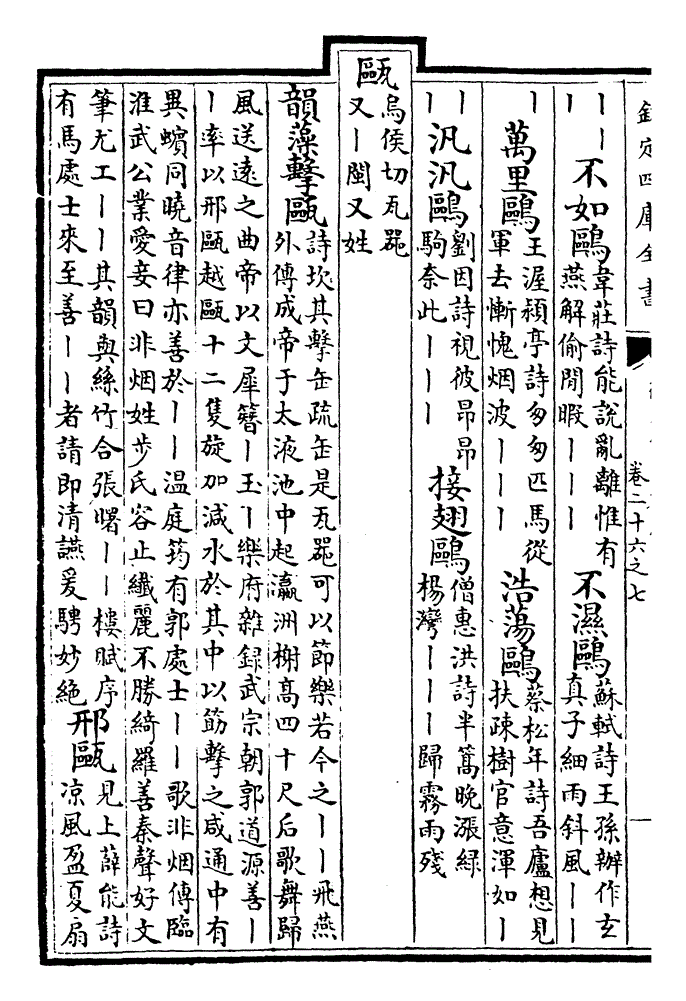 欽定四庫全書
卷二十六之七
｜｜
｜
不如鷗
韋莊詩能說亂離惟有
燕解偷閒暇｜｜｜
不濕鷗
蘇軾詩王孫辦作玄
真子細雨斜風｜｜
｜
萬里鷗
王渥潁亭詩匆匆匹馬從
軍去慚愧烟波｜｜｜
浩蕩鷗
蔡松年詩吾廬想見
扶疎樹官意渾如｜
｜
｜
汎汎鷗
劉因詩視彼昂昂
駒奈此｜｜｜
接翅鷗
僧惠洪詩半篙晚漲緑
楊灣｜｜｜歸霧雨殘
甌
烏侯切瓦器
又｜閩又姓
韻藻擊甌
詩坎其擊缶疏缶是瓦器可以節樂若今之｜｜飛燕
外傳成帝于太液池中起瀛洲榭高四十尺后歌舞歸
風送遠之曲帝以文犀簪｜玉｜樂府雜録武宗朝郭道源善｜
｜率以邢甌越甌十二隻旋加減水於其中以筯擊之咸通中有
異蠙同曉音律亦善於｜｜温庭筠有郭處士｜｜歌非烟傳臨
淮武公業愛妾曰非烟姓步氏容止纖麗不勝綺羅善秦聲好文
筆尤工｜｜其韻與絲竹合張曙｜｜樓賦序
有馬處士來至善｜｜者請即清讌爰騁妙絶
邢甌
見上薛能詩
凉風盈夏扇